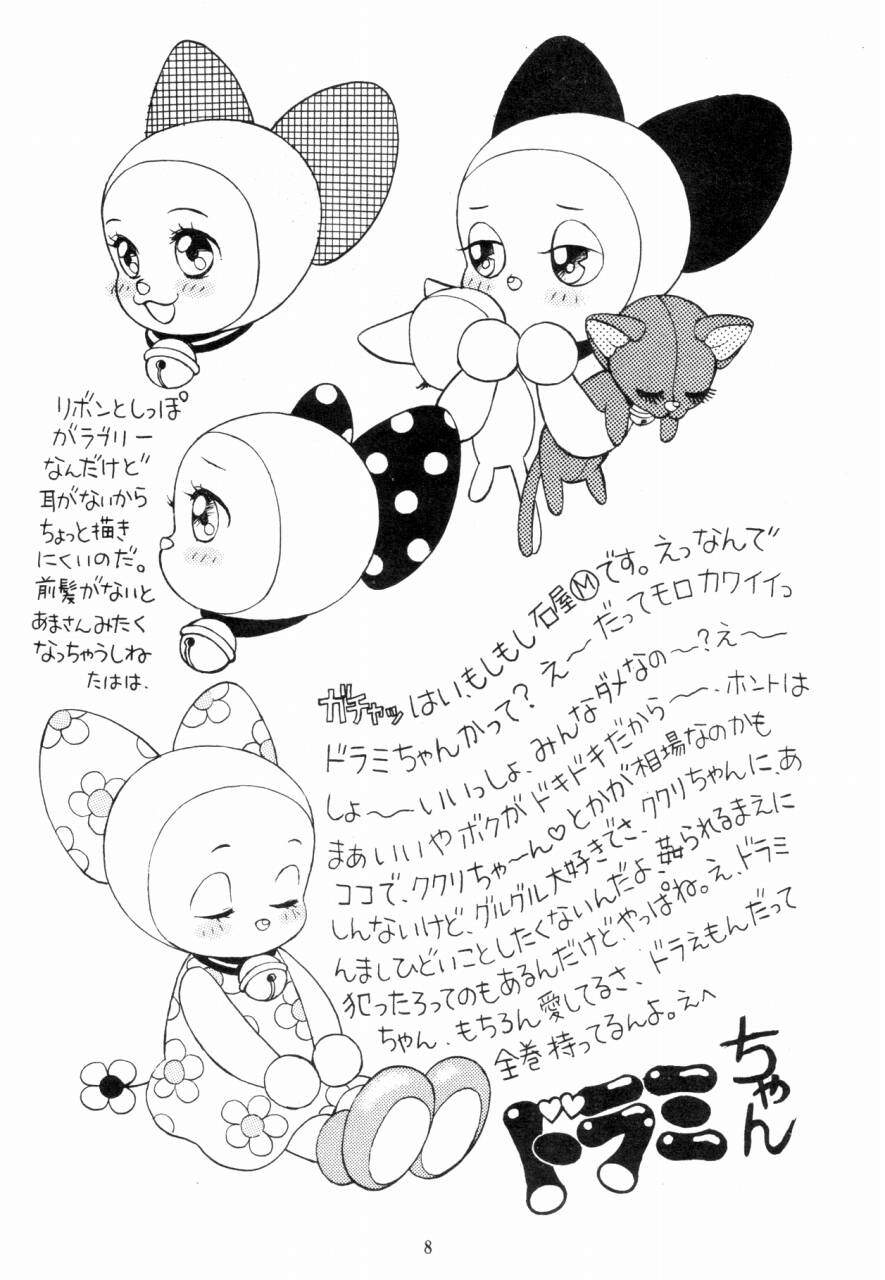 リボンとしっぽ
がラヴリー
なんだけど
耳がないから
ちょっと描き
にくいのだ。
前髪がないと
あまさんみたく
なっちゃうしね
たはは、
ガチャッはい、もしもし石屋Ⓜです。えっなんで
ドラミちゃんかって?え〜だってモロカワイイっ
しょ〜いいっしょ、みんなダメなの〜?え〜
まぁいいやボクがドキドキだから〜、ホントは
ココで、ククリちゃ〜ん♡とかが相場なのかも
しんないけど、グルグル大好きでさ、ククリちゃんに、あ
んましひどいことしたくないんだよ、姦られるまえに
犯ったろってのもあるんだけど、やっぱね。え、ドラミ
ちゃん、もちろん愛してるさ、ドラえもんだって
全巻持ってるんよ。えへ
ドラミちゃん
8